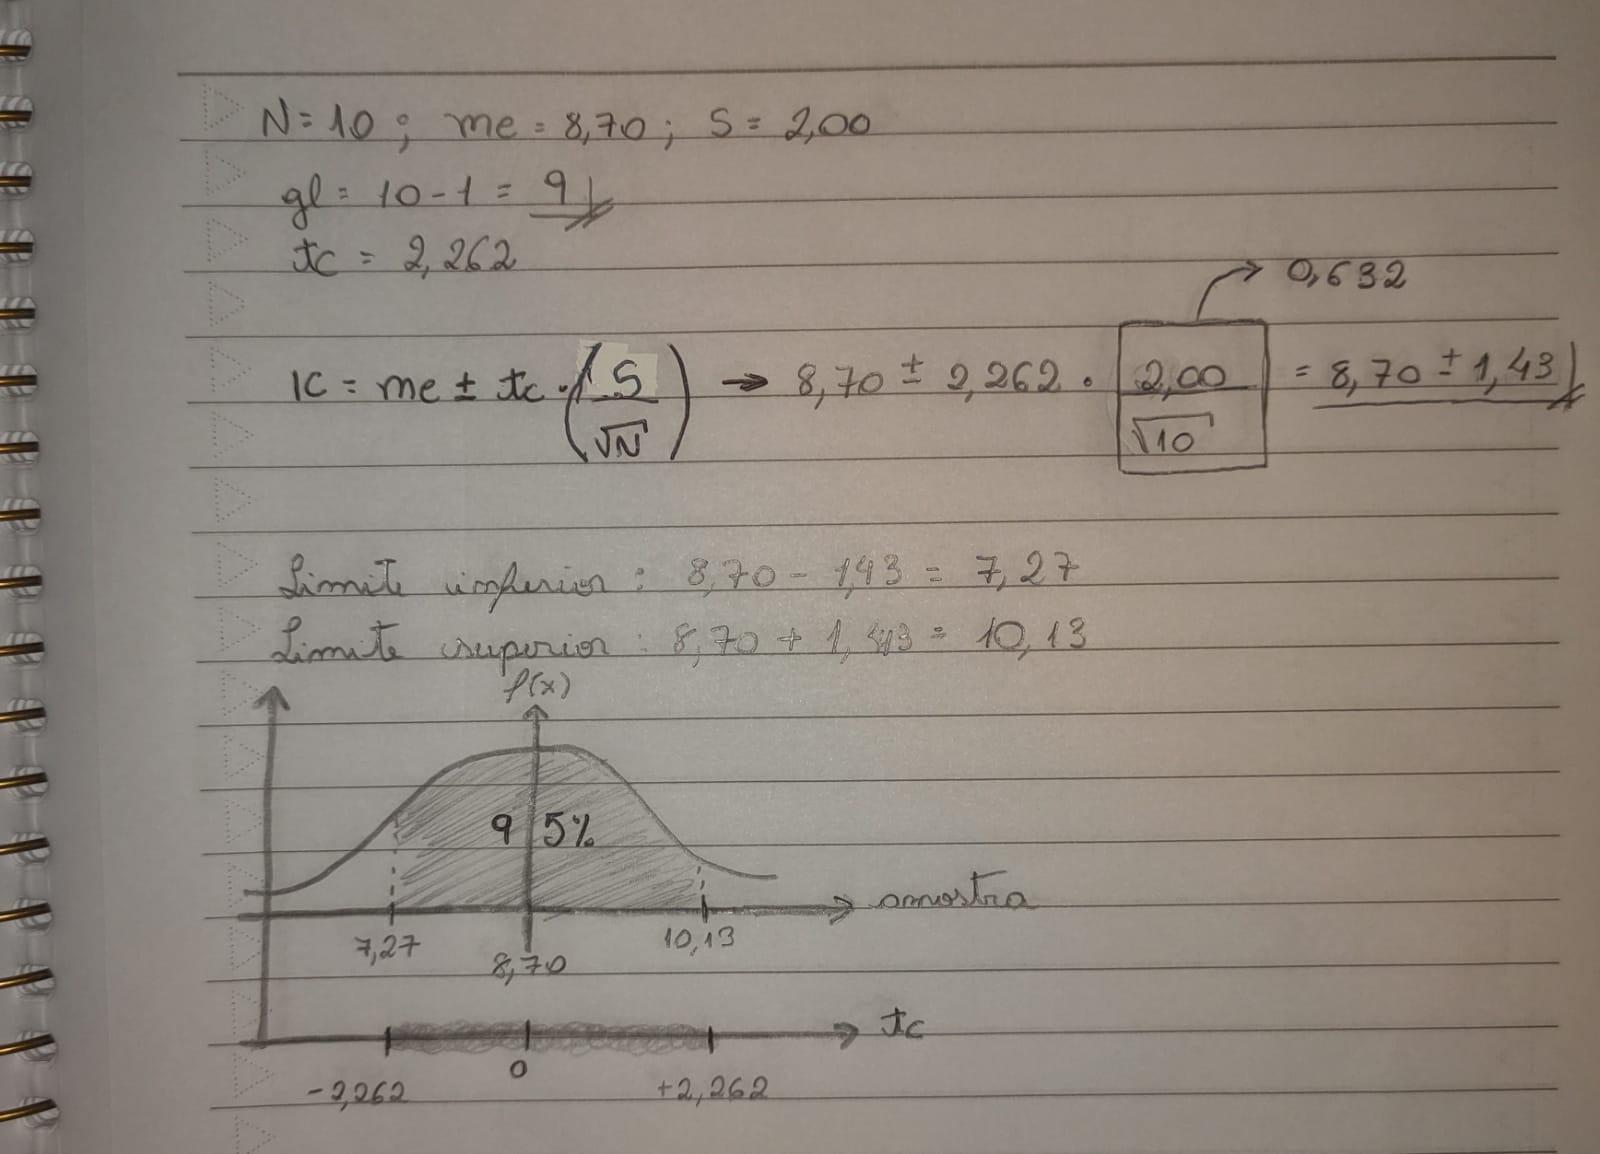 N = 10 ; me = 8,70 ; S = 2,00
gl = 10 - 1 = 9
tc = 2,262
0,632
IC = me ± tc · (S/√N) → 8,70 ± 2,262 · 2,00/√10 = 8,70 ± 1,43
Limite inferior : 8,70 - 1,43 = 7,27
Limite superior : 8,70 + 1,43 = 10,13
f(x)
95%
amostra
7,27 8,70 10,13
tc
-2,262 0 +2,262